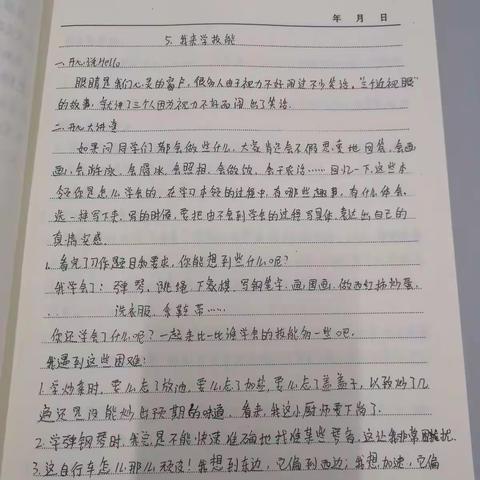 年 月 日
5. 我来学技能
一、开心说Hello
眼睛是我们心灵的窗户,很多人由于视力不好闹过不少笑话,“三个近视眼”
的故事,就讲了三个人因为视力不好而闹出了笑话。
二、开心大讲堂
如果问同学们都会做些什么,大家肯定会不假思索地回答,会画
画,会游泳,会溜冰,会照相,会做饭,会干农活……回忆一下,这些本
领你是怎么学会的,在学习本领的过程中,有哪些趣事,有什么体会,
选一样写下来。写的时候,要把由不会到学会的过程写具体,表达出自己的
真情实感。
1. 看完了习作题目和要求,你能想到些什么呢?
我学会了:弹琴,跳绳,下象棋,写钢笔字,画国画,做西红柿炒蛋,
洗衣服,系鞋带……
你还学会了什么呢?一起来比一比谁学会的技能多一些吧。
我遇到这些困难:
1. 学炒菜时,要么忘了放油,要么忘了加盐,要么忘了盖盖子,以致炒了几
遍还是没能炒出预期的味道。看来,我这小厨师要下岗了。
2. 学弹钢琴时,我总是不能快速准确地找准某些琴音,这让我非常困扰。
3. 这自行车怎么那么顽皮!我想到东边,它偏到西边;我想加速,它偏